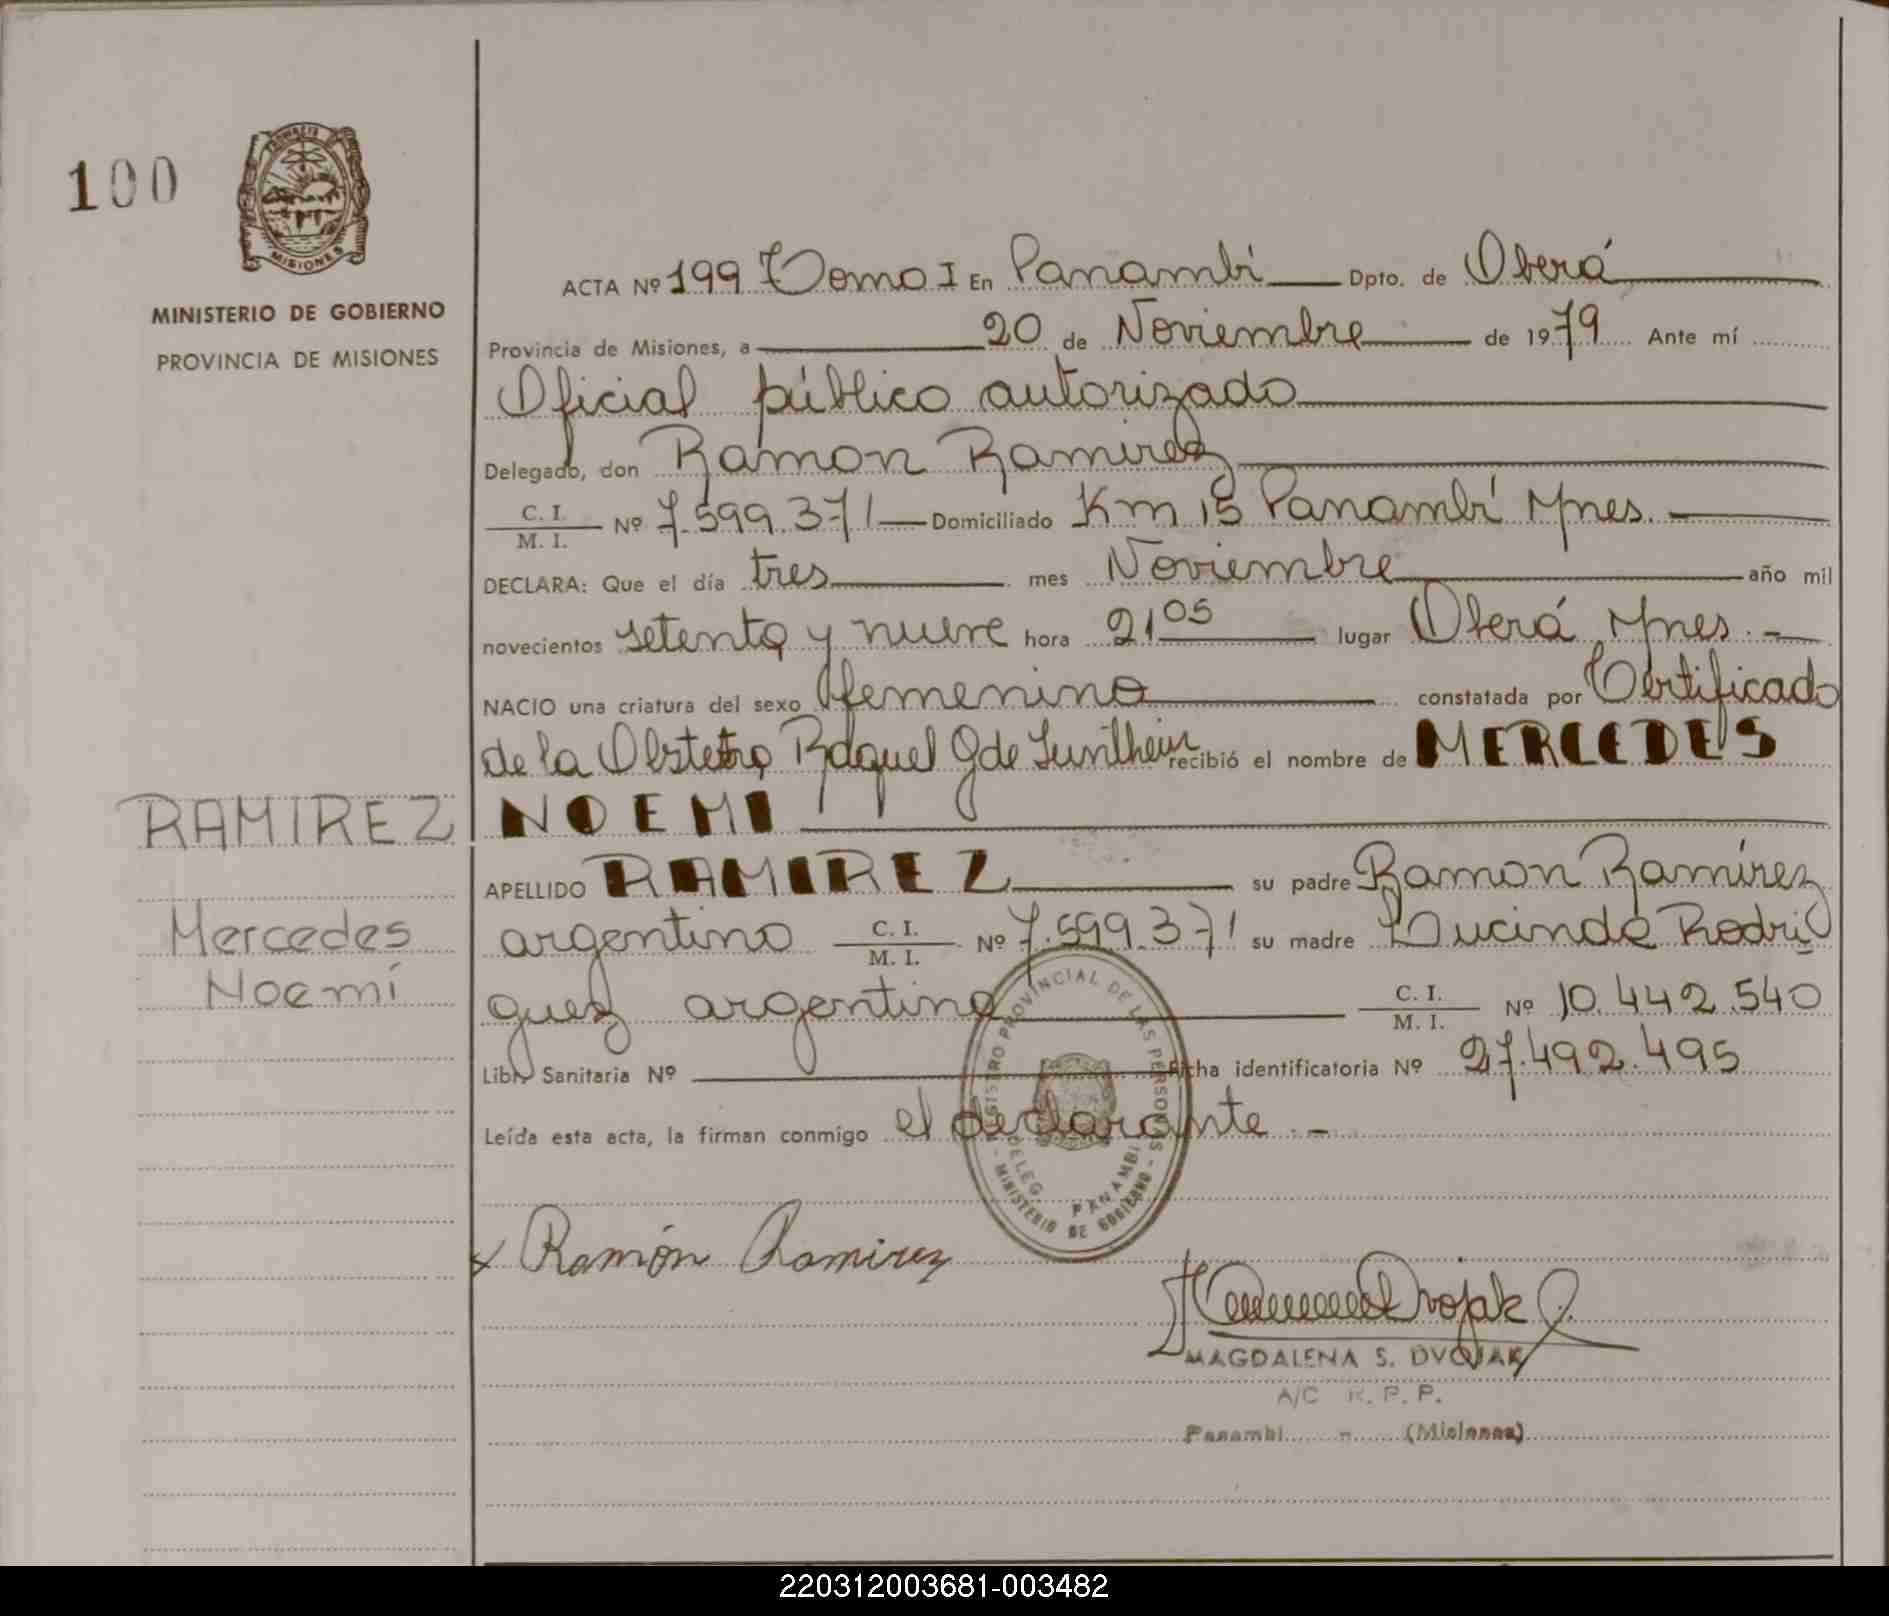 100
MISIONES
MINISTERIO DE GOBIERNO
PROVINCIA DE MISIONES
ACTA Nº 199 Tomo I En Panambí Dpto. de Oberá
Provincia de Misiones, a 20 de Noviembre de 1979 Ante mí
Oficial público autorizado
Delegado, don Ramon Ramirez
C. I.
M. I. Nº 7.599.371 Domiciliado Km 15 Panambí Mnes.
DECLARA: Que el día tres mes Noviembre año mil
novecientos setenta y nueve hora 21 05 lugar Oberá Mnes. -
NACIO una criatura del sexo femenino constatada por Certificado
de la Obstetra Raquel G de recibió el nombre de MERCEDES
RAMIREZ NOEMI
APELLIDO RAMIREZ su padre Ramon Ramírez
Mercedes argentino C. I. M. I. Nº 7.599.371 su madre Lucinda Rodri
Noemí guez argentina C. I. M. I. Nº 10.442.540
Libr. Sanitaria Nº Ficha identificatoria Nº 27.492.495
Leída esta acta, la firman conmigo el declarante. -
REGISTRO PROVINCIAL DE LAS PERSONAS
DELEG. PANAMBI
- MINISTERIO DE GOBIERNO -
x Ramón Ramirez
Dvojak
MAGDALENA S. DVOJAK
A/C R. P. P.
Panambi - (Misiones)
220312003681-003482